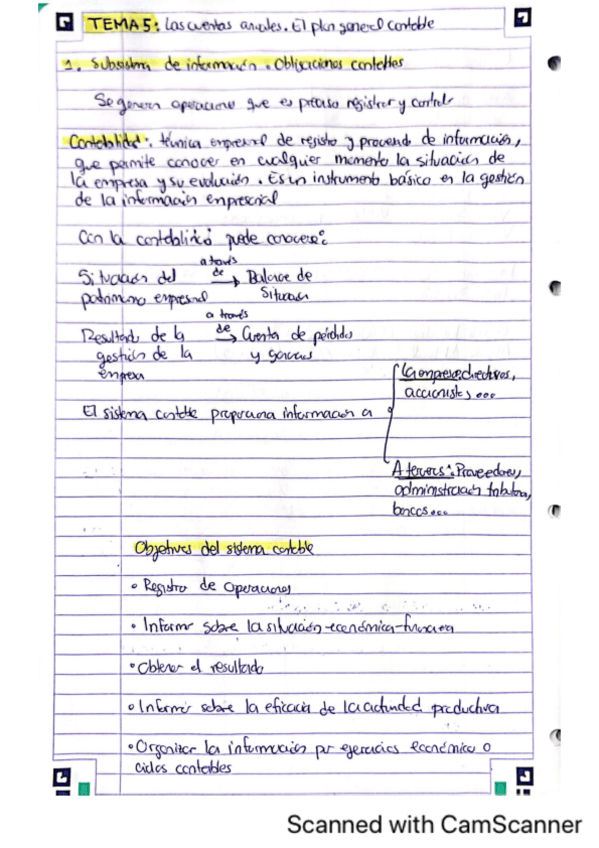 TEMA 5: Las cuentas anuales. El plan general contable
1. Subsistema de información. Obligaciones contables
Se generan operaciones que es preciso registrar y controlar
Contabilidad: técnica empresarial de registro y procesando de información,
que permite conocer en cualquier momento la situación de
la empresa y su evolución. Es un instrumento básico en la gestión
de la información empresarial
Con la contabilidad puede conocerse:
Situación del a través de → Balance de
patrimonio empresarial Situación
Resultado de la a través de → Cuenta de pérdidas
gestión de la y ganancias
empresa
El sistema contable proporciona información a
La empresa: directivos,
accionistas...
A terceros: Proveedores,
administración tributaria,
bancos...
Objetivos del sistema contable
• Registro de Operaciones
• Informar sobre la situación económica-financiera
• Obtener el resultado
• Informar sobre la eficacia de la actividad productiva
• Organizar la información por ejercicios económico o
ciclos contables
Scanned with CamScanner